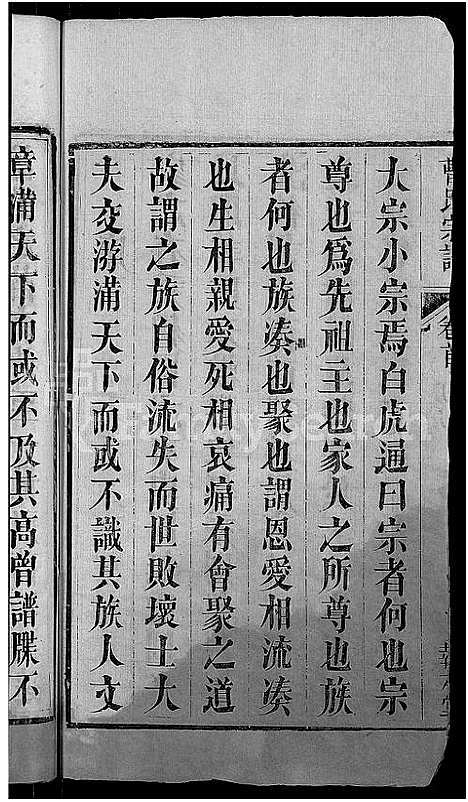 大宗小宗焉白虎通曰宗者何也宗
尊也爲先祖主也家人之所尊也族
者何也族湊也聚也謂恩愛相流湊
也生相親愛死相哀痛有會聚之道
故謂之族自俗流失而世敗壞士大
夫交游滿天下而或不識其族人文
章滿天下而或不及其高曾譜牒不